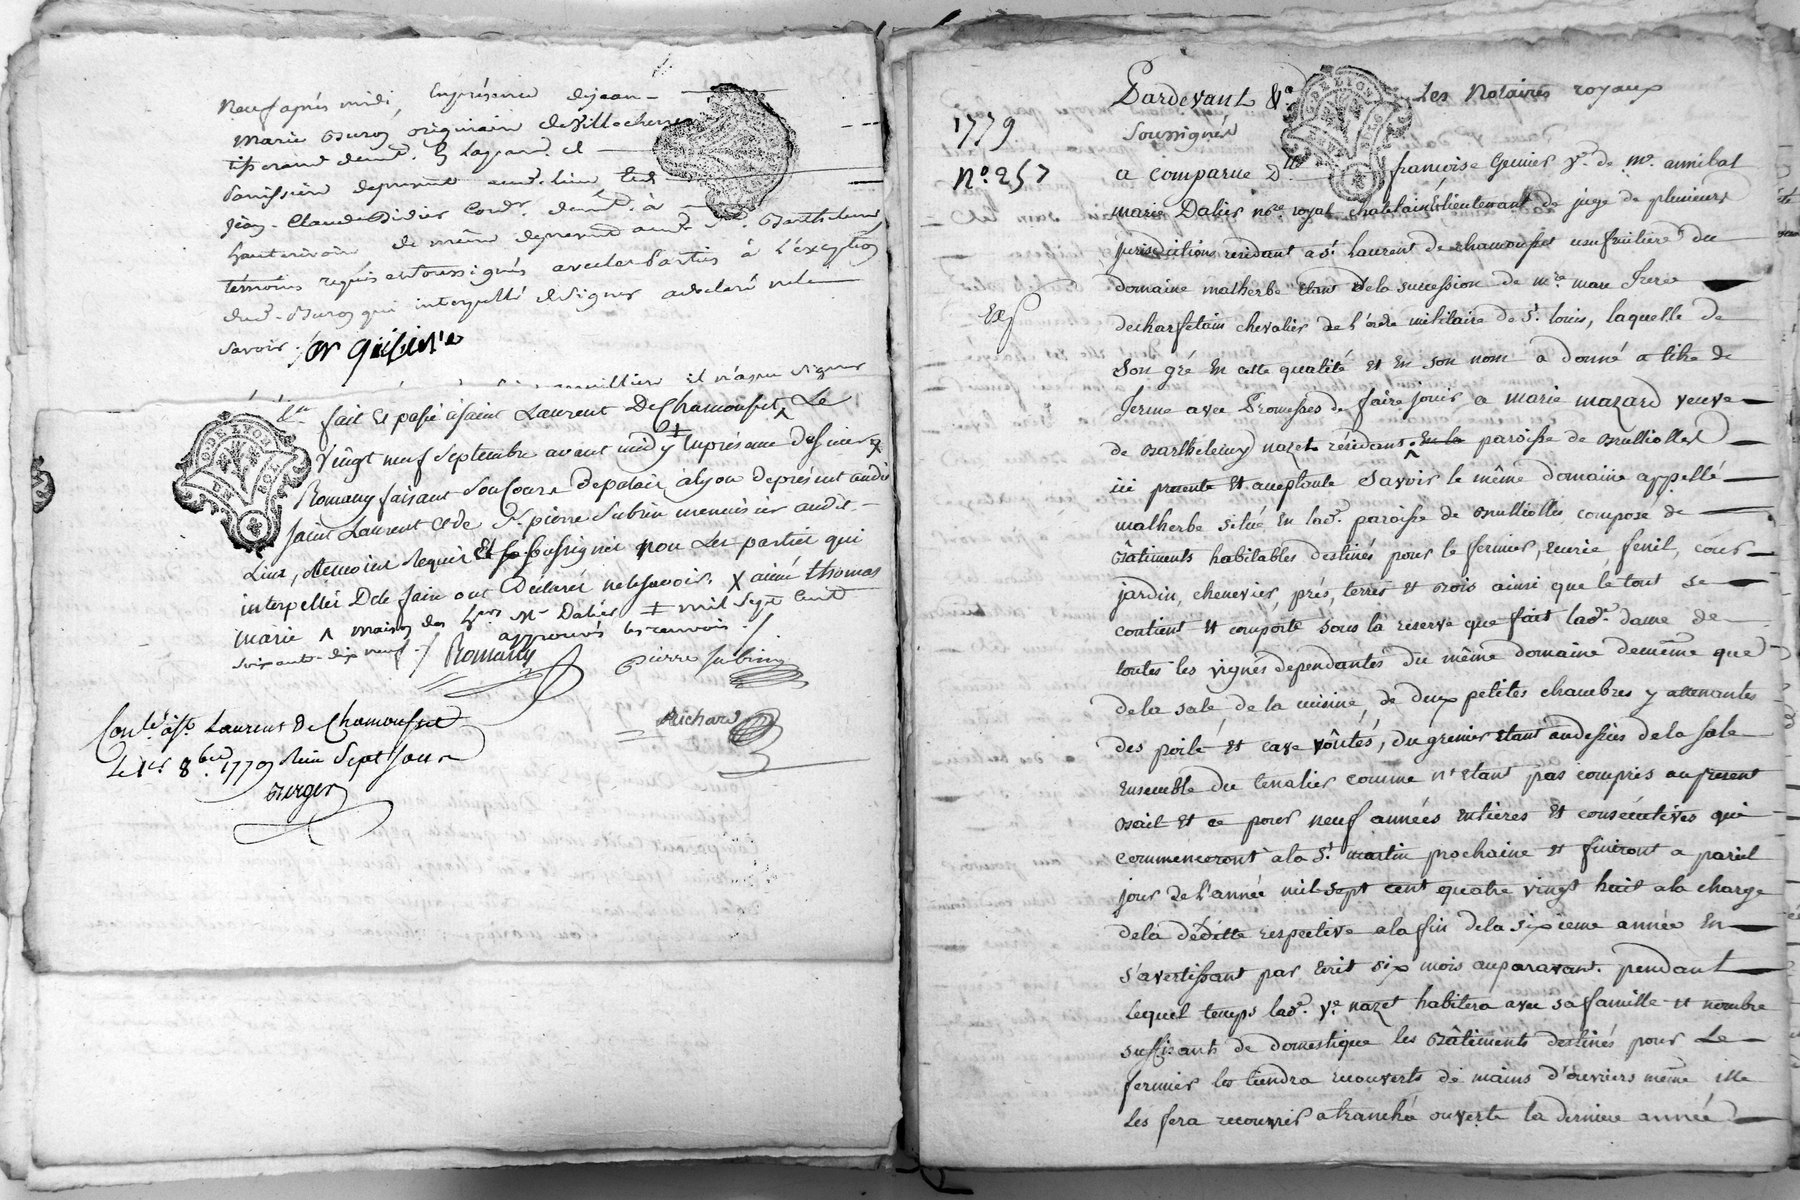 neuf après midi, en présence de jean
marie Buron originaire de Villechenev
tisserand demt. en Lad. par. et
jean Claude Didier Cordr. demt. à
hauterivoire de même deprésent aud. St. Barthelemy
témoins requis et soussignés avec les parties à l'exception
dud. Buron qui interpellé de signer a declaré ne le
savoir.
il n'a sçu signer
fait et passé à saint Laurent De Chamousset ^ Le
vingt neuf septembre avant midy ‡ en présence de sieur X
Romany faisant son Cours de palais à lyon de présent audit
saint Laurent et de Sr. pierre Subrin menuisier audit
Lieu, temoins Requis Et soussignés non Les parties qui
interpellés De le faire ont Déclaré ne le sçavoir. X aimé thomas
marie ^ maison des hers Mr. Dalier ‡ mil sept cent
soixante-dix neuf ./. approuvés les renvois ./.
Romany
pierre subrin
Richard
Conlé. à St. Laurent De Chamousset
Le 1er 8bre. 1779 Reçu sept sous
Burger
OD DE LYON
UN SOL
Pardevant Les Notaires royaux
1779.
N°. 257
soussignés
a comparue Dlle françoise Genier ve. de me. annibal
marie Dalier nore. royal chatelain & lieutenant de juge de plusieurs
jurisdictions residant a st. laurent de chamousset usufruitiere du
domaine malherbe etant de la succession de mre. marc frere
Exp
de charfetain chevalier de l'ordre militaire de st. louis, laquelle de
son gré en cette qualité et en son nom a donné a titre de
ferme avec Promesses de faire jouir a marie mazard veuve
de Barthelemy nazet residant ^ en la paroisse de Brulliolles
ici presente et acceptante Savoir le même domaine appellé
malherbe situé en lade. paroisse de Brulliolles compose de
Bâtiments habitables destinés pour le fermier, ecurie fenil, cour
jardin, chenevier, prés, terres et Bois ainsi que le tout se
contient et comporte sous la reserve que fait lade. dame de
toutes les vignes dependantes du même domaine de même que
de la sale, de la cuisine, de deux petites chambres y attenantes
des poile et cave voûtés, du grenier etant audessus de la sale
ensemble du tenalier comme n'etant pas compris au present
Bail et ce pour neuf années entières et consécutives qui
commenceront a la st. martin prochaine et finiront a pareil
jour de l'année mil sept cent quatre vingt huit a la charge
de la déditte respective a la fin de la sixieme année en
s'avertissant par ecrit six mois auparavant. pendant
lequel temps lade. ve. nazet habitera avec sa famille et nombre
suffisants de domestique les Bâtiments destinés pour le
fermier les tiendra recouverts de mains d'ouvriers même elle
les fera recouvrir a tranché ouverte la derniere année